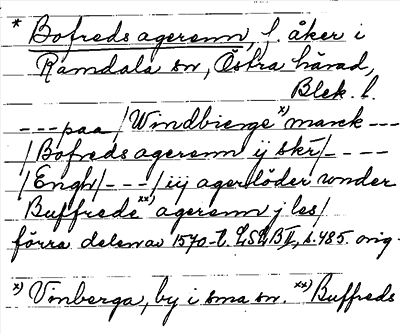 * Bofreds agerenn, f. åker i
Ramdala sn, Östra härad,
Blek. l.
---paa /Windbierge x) marck ---
/Bofreds agerenn ij skr/- - -
/Engh/---/iij agerlöder wonder
Buffrede xx) agerenn j les/
förra delen av 1570-t. LSLB II, s. 485. orig.
x) Vinberga, by i sma sn. xx) Buffreds